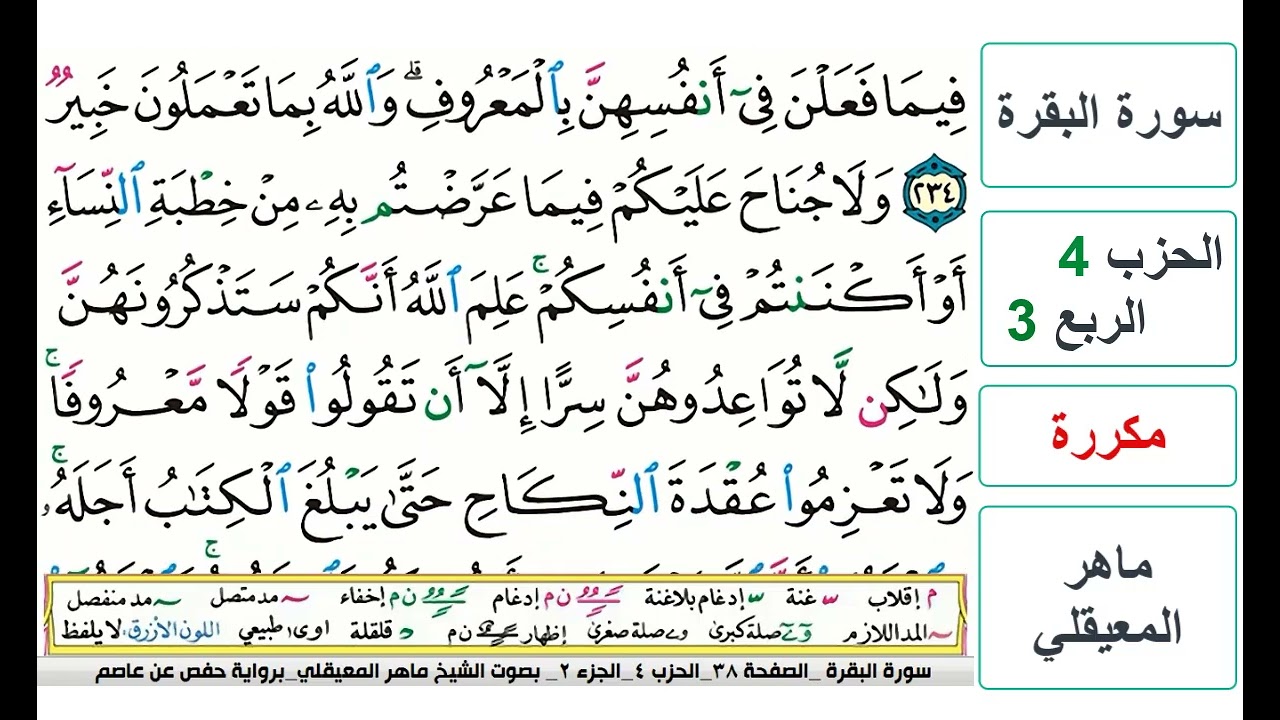 فِيمَا فَعَلْنَ فِىٓ أَنفُسِهِنَّ بِٱلْمَعْرُوفِ ۗ وَٱللَّهُ بِمَا تَعْمَلُونَ خَبِيرٌ
٢٣٤ وَلَا جُنَاحَ عَلَيْكُمْ فِيمَا عَرَّضْتُم بِهِۦ مِنْ خِطْبَةِ ٱلنِّسَآءِ
أَوْ أَكْنَنتُمْ فِىٓ أَنفُسِكُمْ ۚ عَلِمَ ٱللَّهُ أَنَّكُمْ سَتَذْكُرُونَهُنَّ
وَلَٰكِن لَّا تُوَاعِدُوهُنَّ سِرًّا إِلَّآ أَن تَقُولُوا۟ قَوْلًا مَّعْرُوفًا ۚ
وَلَا تَعْزِمُوا۟ عُقْدَةَ ٱلنِّكَاحِ حَتَّىٰ يَبْلُغَ ٱلْكِتَٰبُ أَجَلَهُۥ ۚ
م إقلاب غنة إدغام بلاغنة ن م إدغام ن م إخفاء مد متصل مد منفصل
المد اللازم صلة كبرى صلة صغرى إظهار ن م قلقلة اوى طبيعي اللون الأزرق لا يلفظ
سورة البقرة _الصفحة ٣٨_الحزب ٤_الجزء ٢_ بصوت الشيخ ماهر المعيقلي_برواية حفص عن عاصم
سورة البقرة
الحزب 4
الربع 3
مكررة
ماهر
المعيقلي